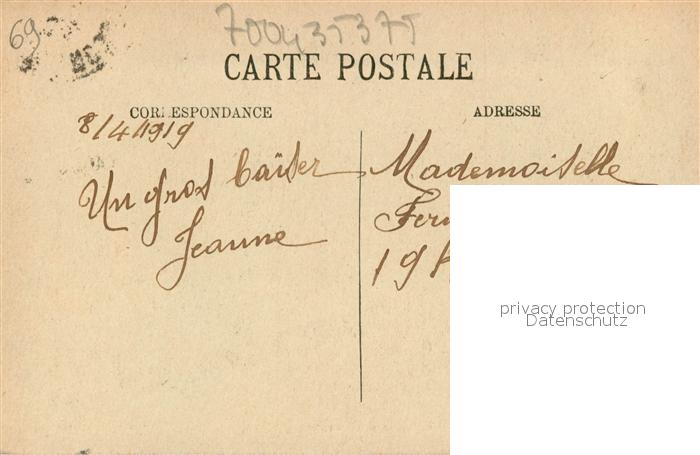 69
700435375
CARTE POSTALE
CORRESPONDANCE
ADRESSE
8/4/1919
Un gros baiser
Jeanne
Mademoiselle
privacy protection
Datenschutz